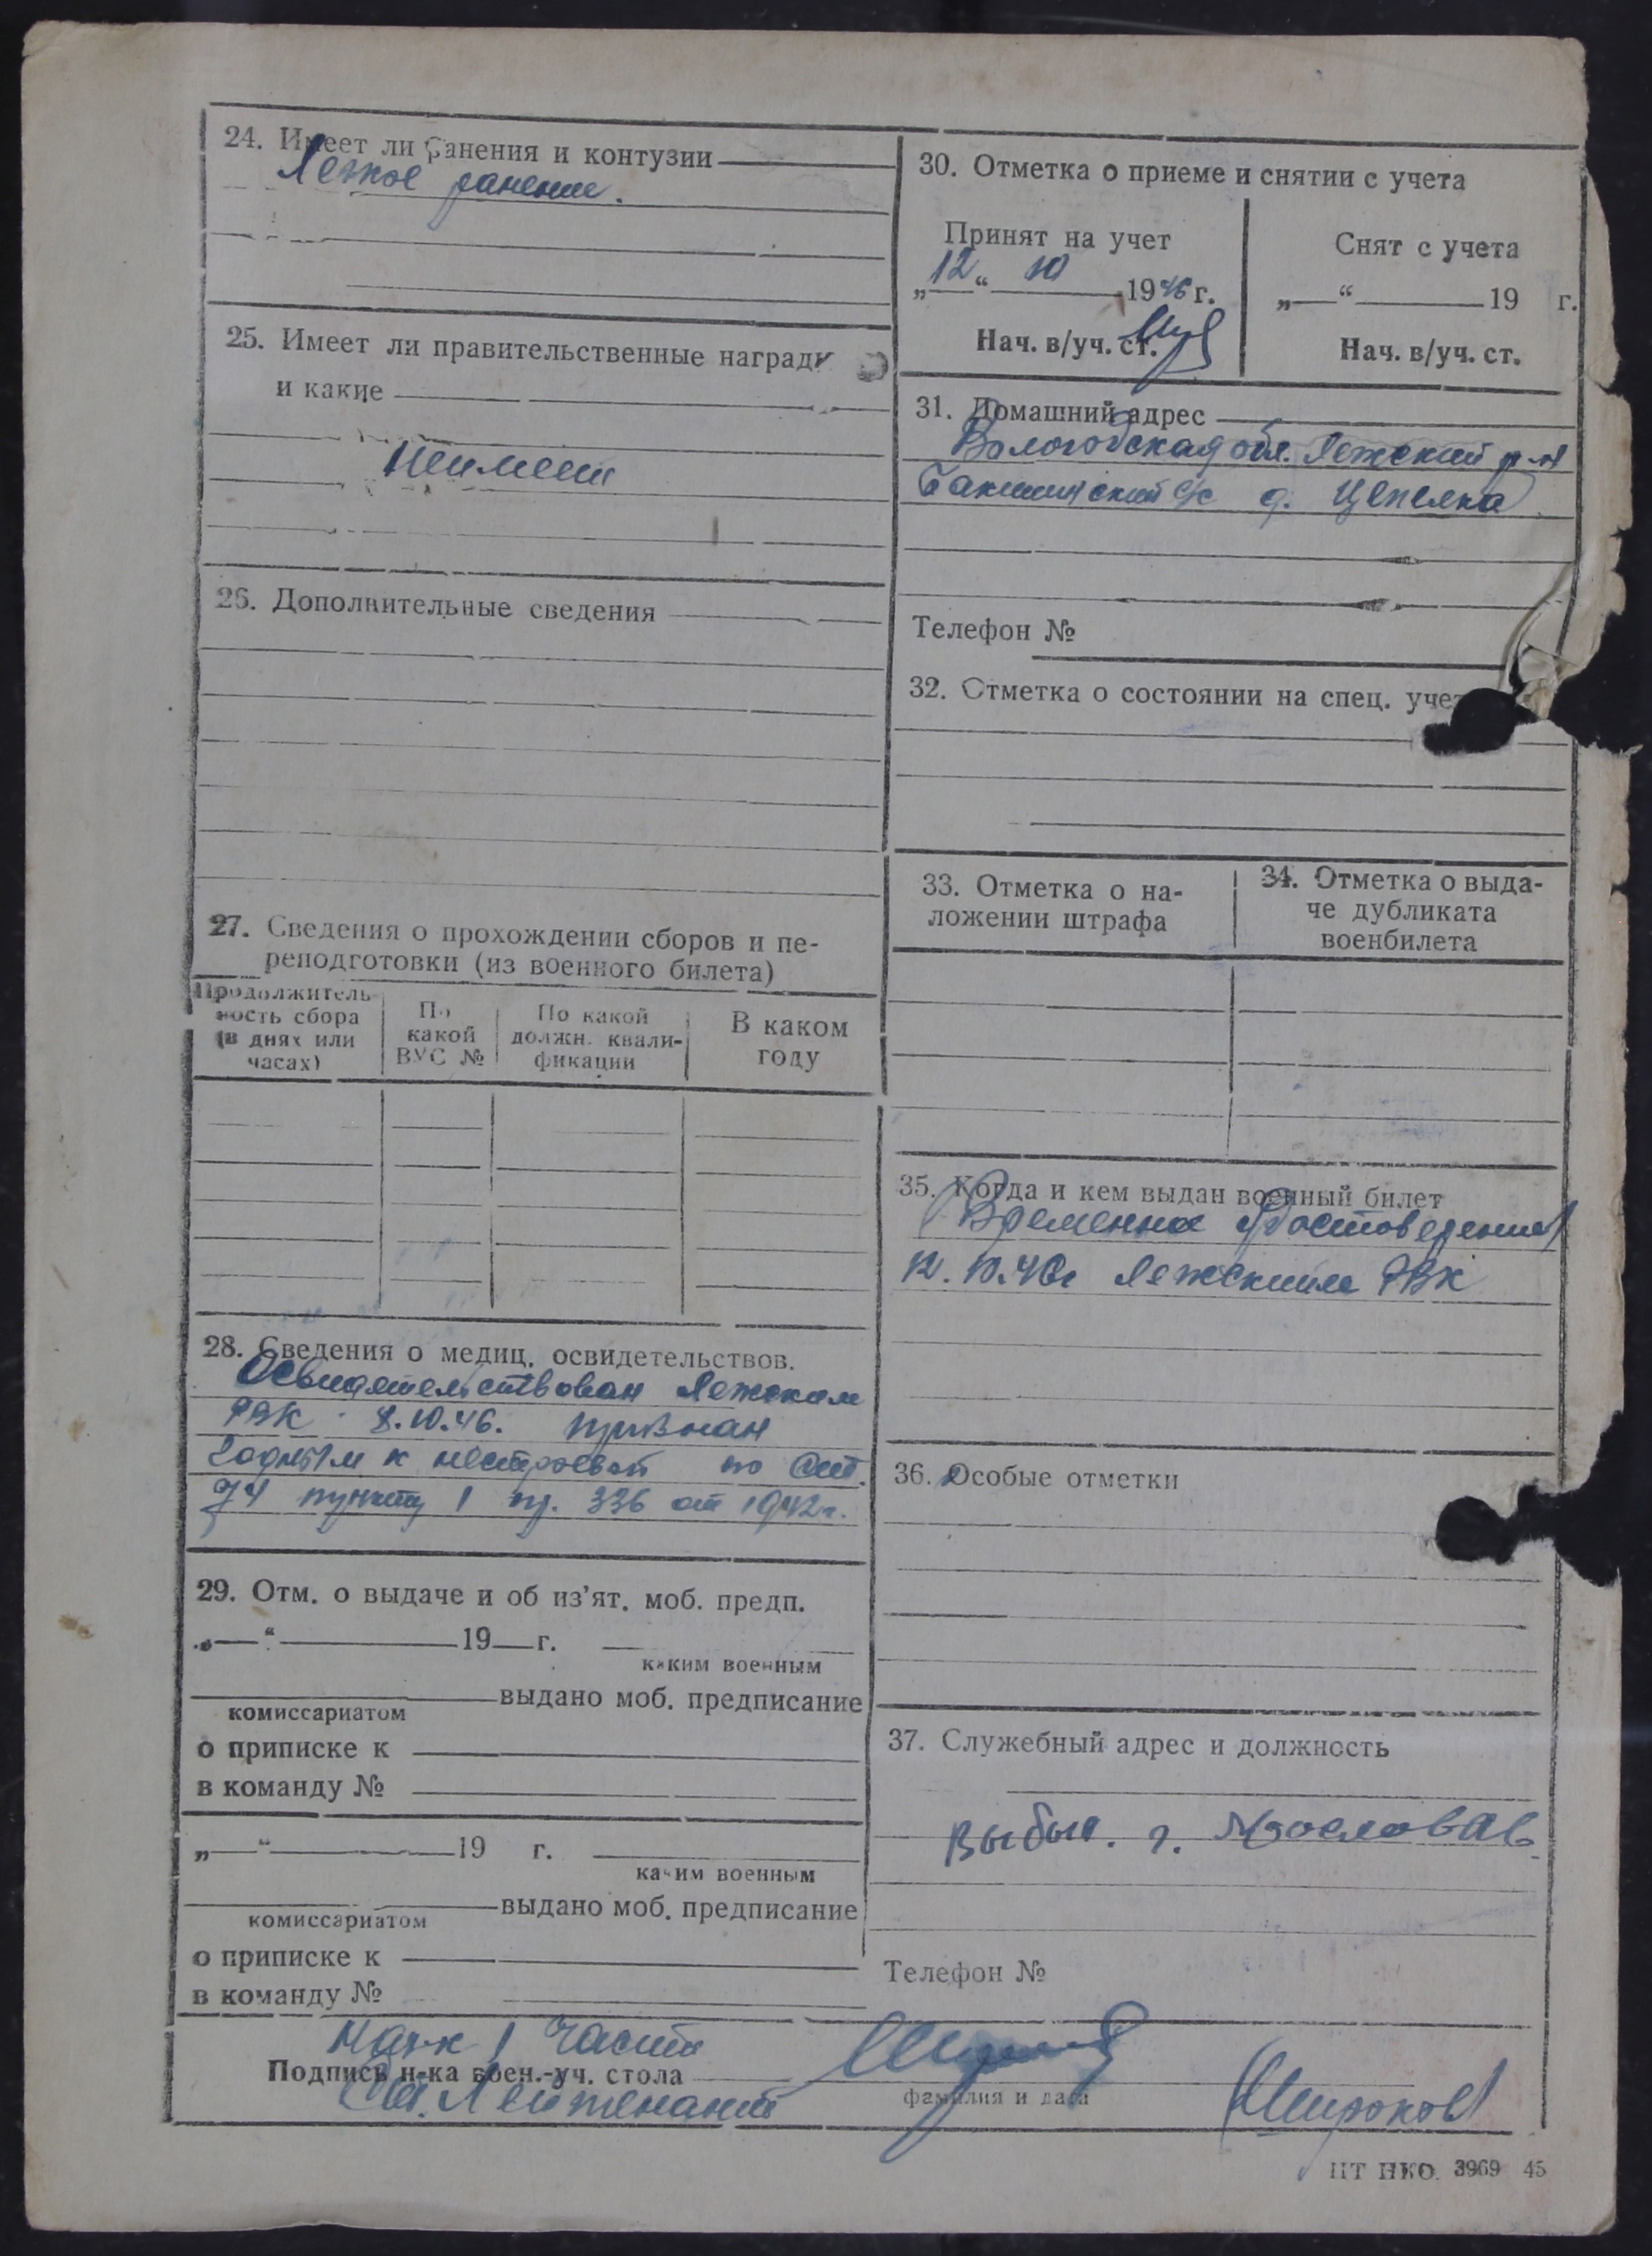 24. Имеет ли ранения и контузии
Легкое ранение.
25. Имеет ли правительственные награды
и какие
Неимеет
26. Дополнительные сведения
27. Сведения о прохождении сборов и пе-
реподготовки (из военного билета)
Продолжитель-
ность сбора
(в днях или
часах)
По
какой
ВУС №
По какой
должн. квали-
фикации
В каком
году
28. Сведения о медиц. освидетельствов.
Освидетельствован Лежским
РВК 8.10.46. признан
годным к нестроевой по ст.
74 пункту 1 пр. 336 от 1942г.
29. Отм. о выдаче и об из'ят. моб. предп.
„—“ 19 г.
каким военным
выдано моб. предписание
комиссариатом
о приписке к
в команду №
„—“ 19 г.
каким военным
выдано моб. предписание
комиссариатом
о приписке к
в команду №
30. Отметка о приеме и снятии с учета
Принят на учет
„12“ 10 1946 г.
Нач. в/уч. ст.
Снят с учета
„—“ 19 г.
Нач. в/уч. ст.
31. Домашний адрес
Вологодская обл. Лежский р-н
с/с д. Цепелка
Телефон №
32. Отметка о состоянии на спец. уче
33. Отметка о на-
ложении штрафа
34. Отметка о выда-
че дубликата
военбилета
35. Когда и кем выдан военный билет
(Временное удостоверение)
12.10.46г Лежским РВК
36. Особые отметки
37. Служебный адрес и должность
Выбыл. г.
Телефон №
Нач-к 1 части
Подпись н-ка воен.-уч. стола
Ст. Лейтенант
фамилия и дата
(Широков)
ЦТ НКО. 3969 45